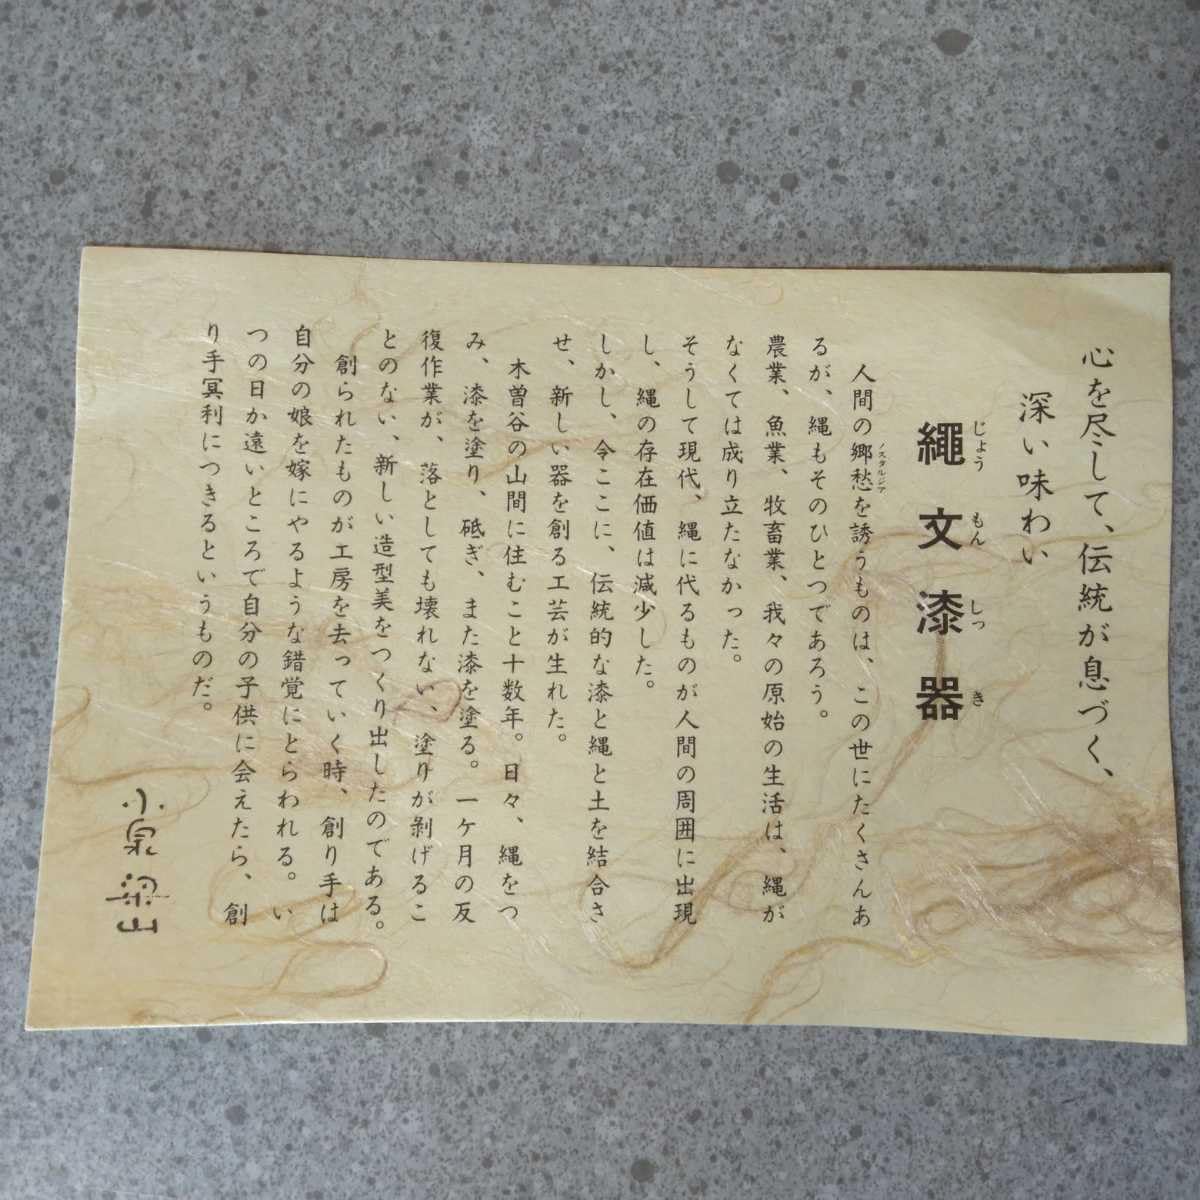 心を尽して、伝統が息づく、
深い味わい
じょう もん しっ き
繩文漆器
人間の郷愁を誘うものは、この世にたくさんあ
ノスタルジア
るが、縄もそのひとつであろう。
農業、魚業、牧畜業、我々の原始の生活は、縄が
なくては成り立たなかった。
そうして現代、縄に代るものが人間の周囲に出現
し、縄の存在価値は減少した。
しかし、今ここに、伝統的な漆と縄と土を結合さ
せ、新しい器を創る工芸が生れた。
木曽谷の山間に住むこと十数年。日々、縄をつ
み、漆を塗り、砥ぎ、また漆を塗る。一ケ月の反
復作業が、落としても壊れない、塗りが剥げるこ
とのない、新しい造型美をつくり出したのである。
創られたものが工房を去っていく時、創り手は
自分の娘を嫁にやるような錯覚にとらわれる。い
つの日か遠いところで自分の子供に会えたら、創
り手冥利につきるというものだ。